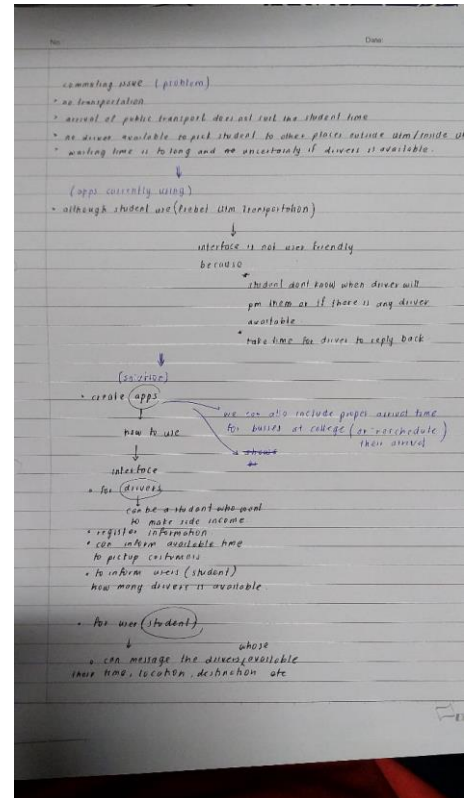 No:
Date:
commuting issue (problem)
• no transportation
• arrival of public transport does not suit the student time
• no driver available to pick student to other places outside utm/inside
• waiting time is to long and uncertainty if drivers is available.
(apps currently using)
• although student use (Prebet Utm Transportation)
interface is not user friendly
because
• student dont know when driver will
pm them or if there is any driver
available
• take time for driver to reply back
• create apps
we can also include proper arrival time
for busses at college (or reschedule
their arrival
how to use
interface
• for drivers
can be a student who want
to make side income
• register information
• can inform available time
to pickup costumers
• to inform users (student)
how many drivers is available.
• for user (student)
whose
• can message the drivers available
time, location, destination etc